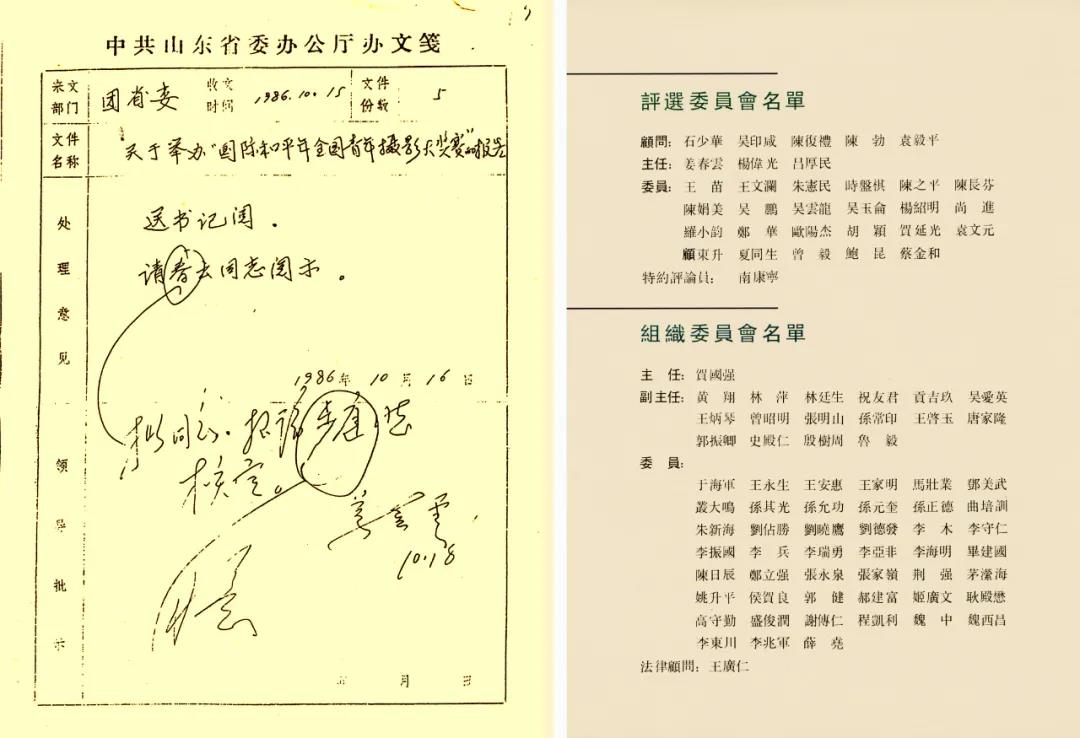 中共山东省委办公厅办文笺
来文部门
团省委
收文时间
1986.10.15
文件份数
5
文件名称
"关于举办"国际和平年全国青年摄影大奖赛"的报告
处理意见
送书记阅.
请春云同志阅示。
1986年10月16日
领导批示
拟同意.
核定。
姜春云
10.18
月 日
評選委員會名單
顧問: 石少華 吴印咸 陳復禮 陳 勃 袁毅平
主任: 姜春雲 楊偉光 吕厚民
委員: 王 苗 王文瀾 朱憲民 時盤棋 陳之平 陳長芬
陳娟美 吴 鵬 吴雲龍 吴玉侖 楊紹明 尚 進
羅小韵 鄭 華 歐陽杰 胡 穎 賀延光 袁文元
顧東升 夏同生 曾 毅 鮑 昆 蔡金和
特約評論員: 南康寧
組織委員會名單
主 任: 賀國强
副主任: 黄 翔 林 萍 林廷生 祝友君 貢吉玖 吴愛英
王炳琴 曾昭明 張明山 孫常印 王啓玉 唐家隆
郭振卿 史殿仁 殷樹周 魯 毅
委 員:
于海軍 王永生 王安惠 王家明 馬壯業 鄧美武
叢大鳴 孫其光 孫允功 孫元奎 孫正德 曲培訓
朱新海 劉佔勝 劉曉鷹 劉德發 李 木 李守仁
李振國 李 兵 李瑞勇 李亞非 李海明 畢建國
陳日辰 鄭立强 張永泉 張家嶺 荆 强 茅瀠海
姚升平 侯賀良 郭 健 郝建富 姬廣文 耿殿懋
高守勤 盛俊潤 謝傳仁 程凱利 魏 中 魏西昌
李東川 李兆軍 薛 堯
法律顧問: 王廣仁